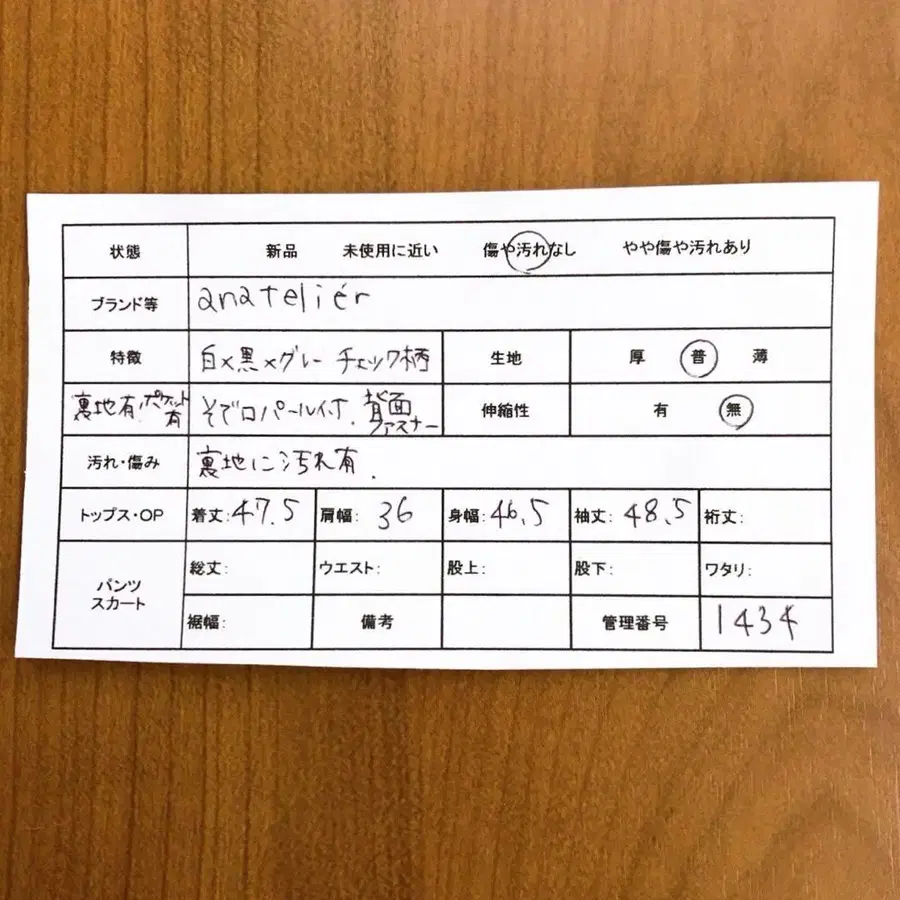 状態 新品 未使用に近い 傷や汚れなし やや傷や汚れあり
ブランド等 anateliér
特徴 白×黒×グレー チェック柄 生地 厚 普 薄
裏地有.ポケット有 そで口パール付.背面ファスナー 伸縮性 有 無
汚れ・傷み 裏地に汚れ有.
トップス・OP 着丈:47.5 肩幅: 36 身幅:46.5 袖丈:48.5 裄丈:
パンツ
スカート
総丈: ウエスト: 股上: 股下: ワタリ:
裾幅: 備考 管理番号 1434